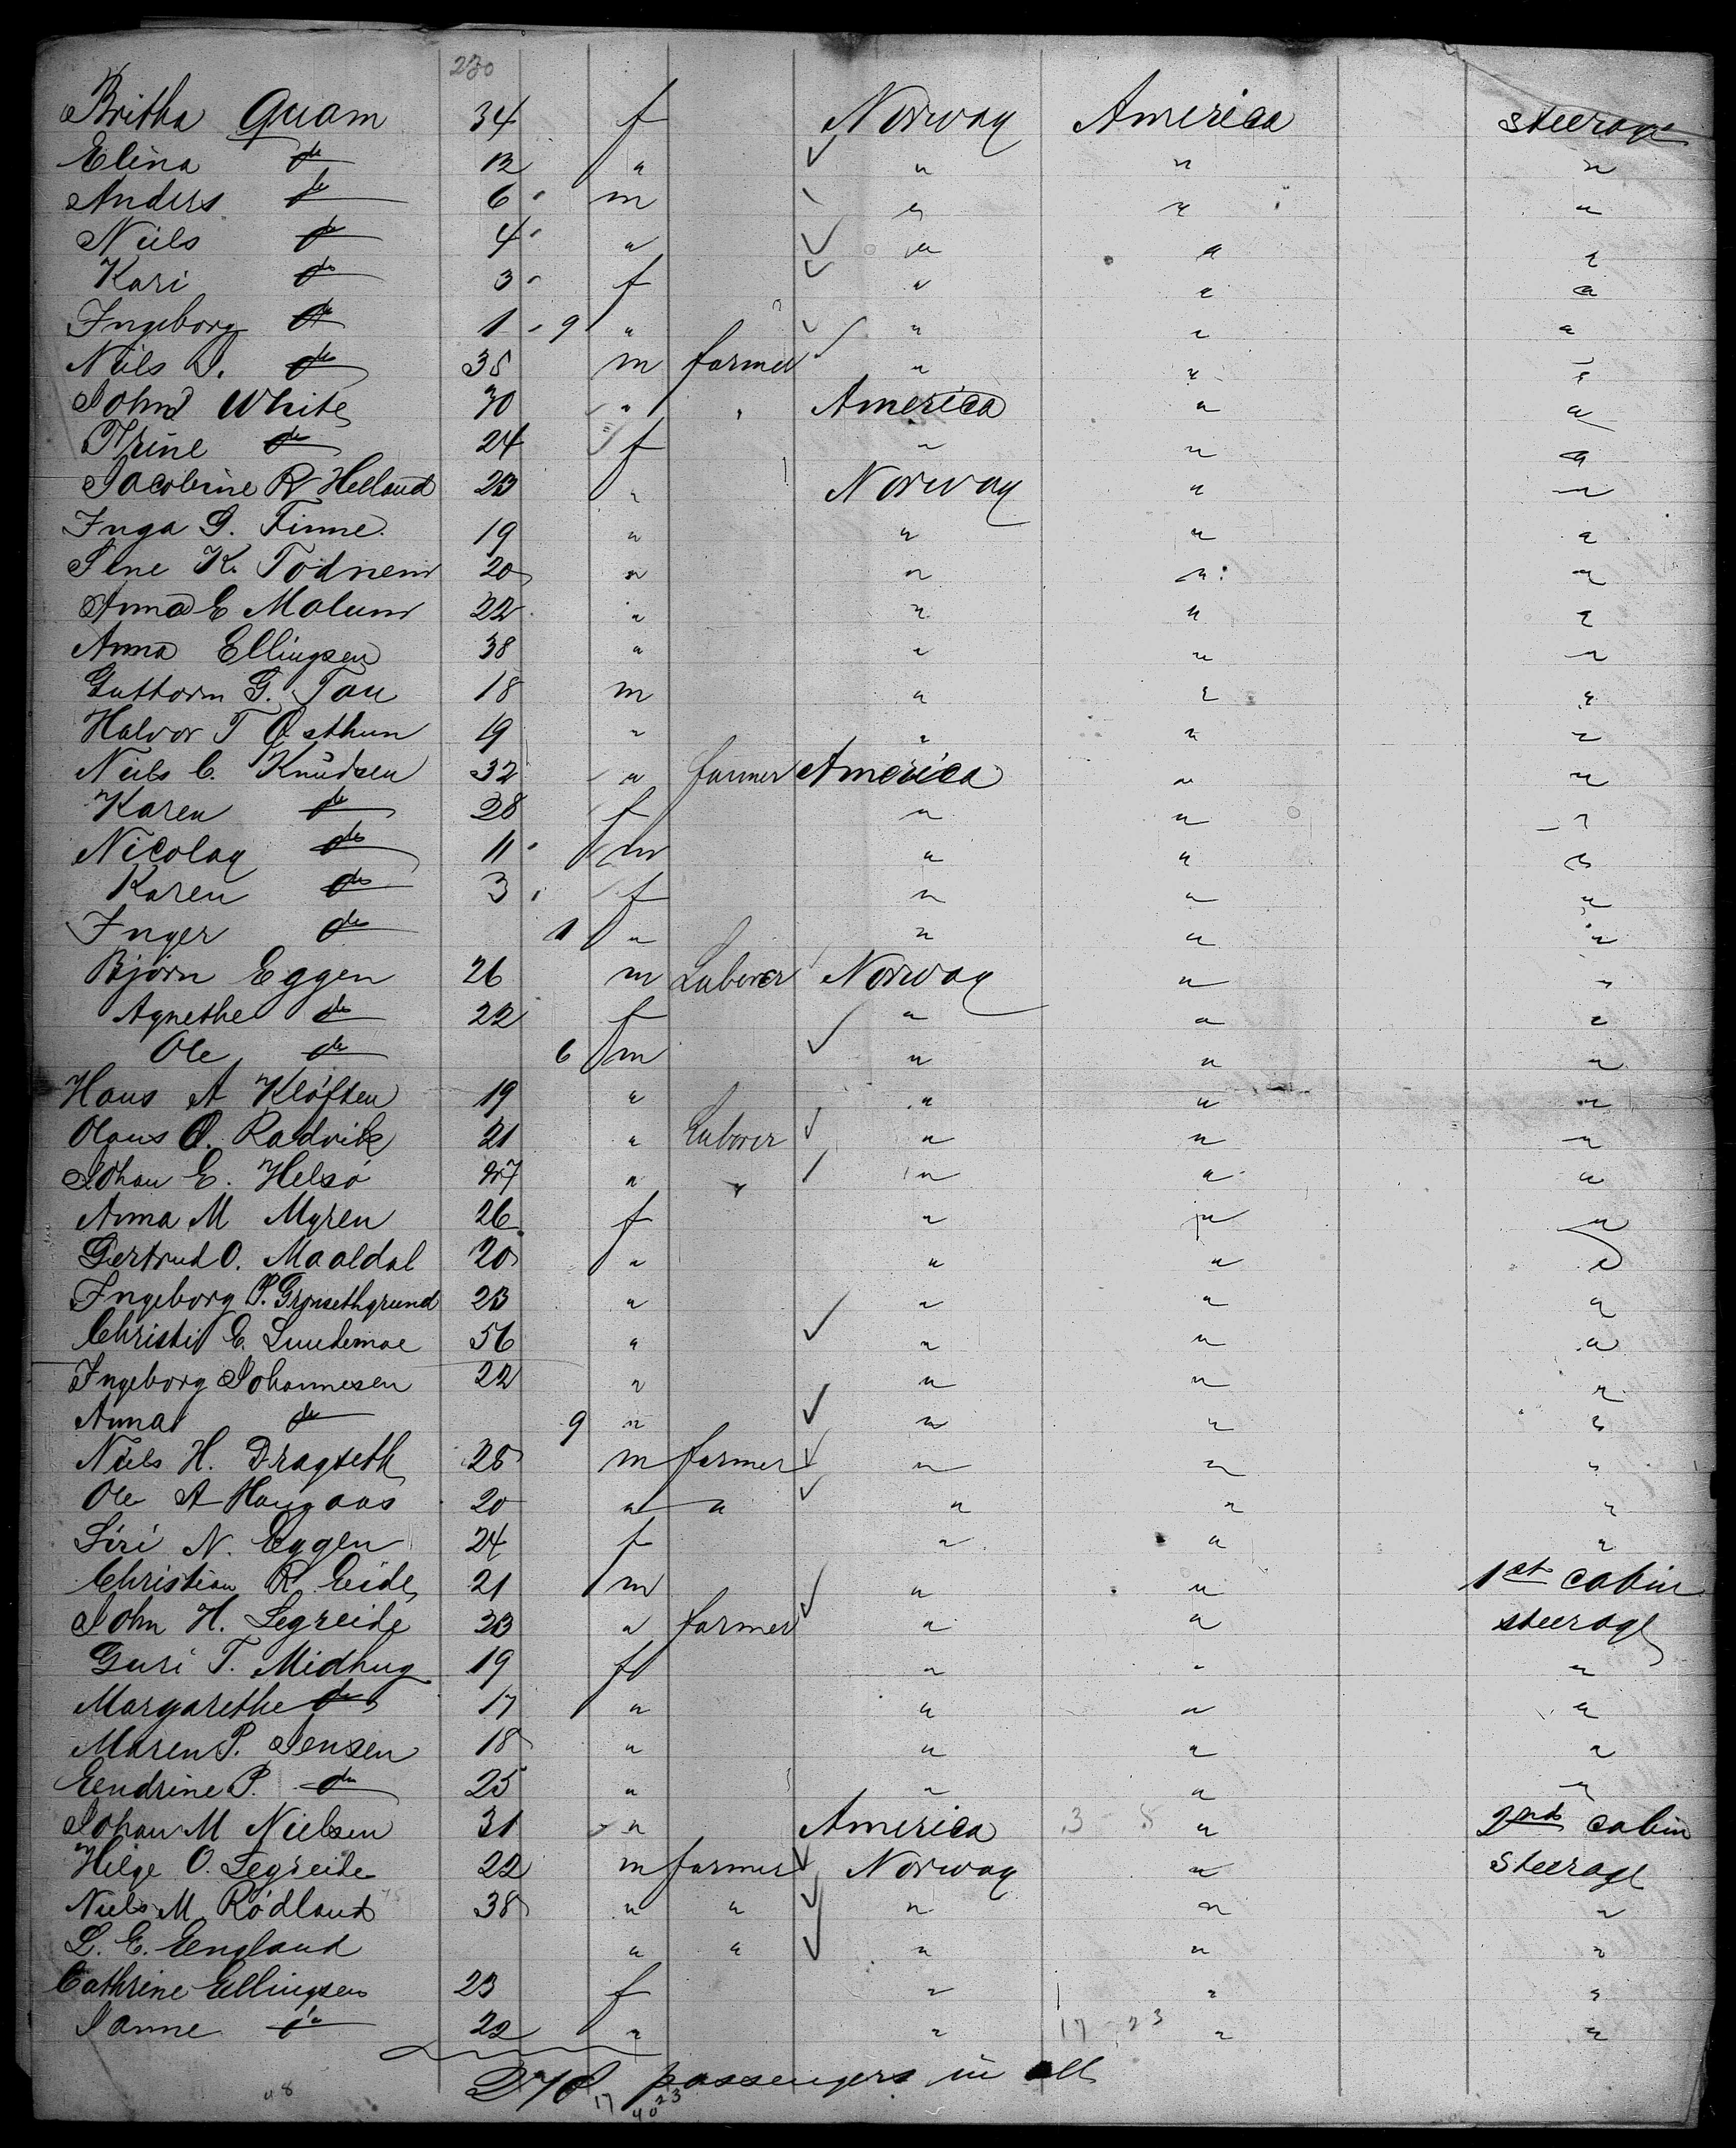 230
Britha Quam 34 f Norway America steerage
Elina do 12 " ✓ " " "
Anders do 6 m " " "
Niels do 4 " ✓ " " "
Kari do 3 f ✓ " " "
Ingeborg do 1 9 " ✓ " " "
Niels S. do 38 m farmer ✓ " " "
John White 30 " " America " "
Trine do 24 f " " "
Jacobine R Helland 23 " Norway " "
Inga G. Finne 19 " " " "
Sine K. Todnem 20 " " " "
Anna E Molum 22 " " " "
Anna Ellingsen 38 " " " "
Guttorm G. Tou 18 m " " "
Halvor T Østhun 19 " " " "
Niels C. Knudsen 32 " farmer America " "
Karen do 28 f " " "
Nicolay do 11 m " " "
Karen do 3 f " " "
Inger do 1 " " " "
Bjørn Eggen 26 m Laborer Norway " "
Agnethe do 22 f " " "
Ole do 6 m ✓ " " "
Hans A Kløften 19 " " " "
Olaus O. Radvik 21 " Laborer ✓ " " "
Johan E. Helsø " " " " "
Anna M Myren 26 f " " "
Gertrud O. Maaldal 20 " " " "
Ingeborg P. Grønsethgrund 23 " " " "
Christi E. Lundemoe 56 " ✓ " " "
Ingeborg Johannesen 22 " " " "
Anna do 9 " ✓ " " "
Niels H. Dragseth 28 m farmer ✓ " " "
Ole A Haugaas 20 " " ✓ " " "
Siri N. Eggen 24 f " " "
Christian R. Eide 21 m ✓ " " 1st cabin
John H. Legreide 23 " farmer ✓ " " steerage
Guri T. Midhug 19 f " " "
Margarethe do 17 " " " "
Maren P. Jensen 18 " " " "
Eendrine P. do 25 " " " "
Johan M Nielsen 31 " America 3 8 " 2nd cabin
Helge O. Legreide 22 m farmer ✓ Norway " steerage
Niels M. Rødland 38 " " ✓ " " "
L. E. Eengland " " ✓ " " "
Cathrine Ellingsen 23 f " " "
Janne do 22 " " 17 23 " "
278 passengers in all
48 17 23
40